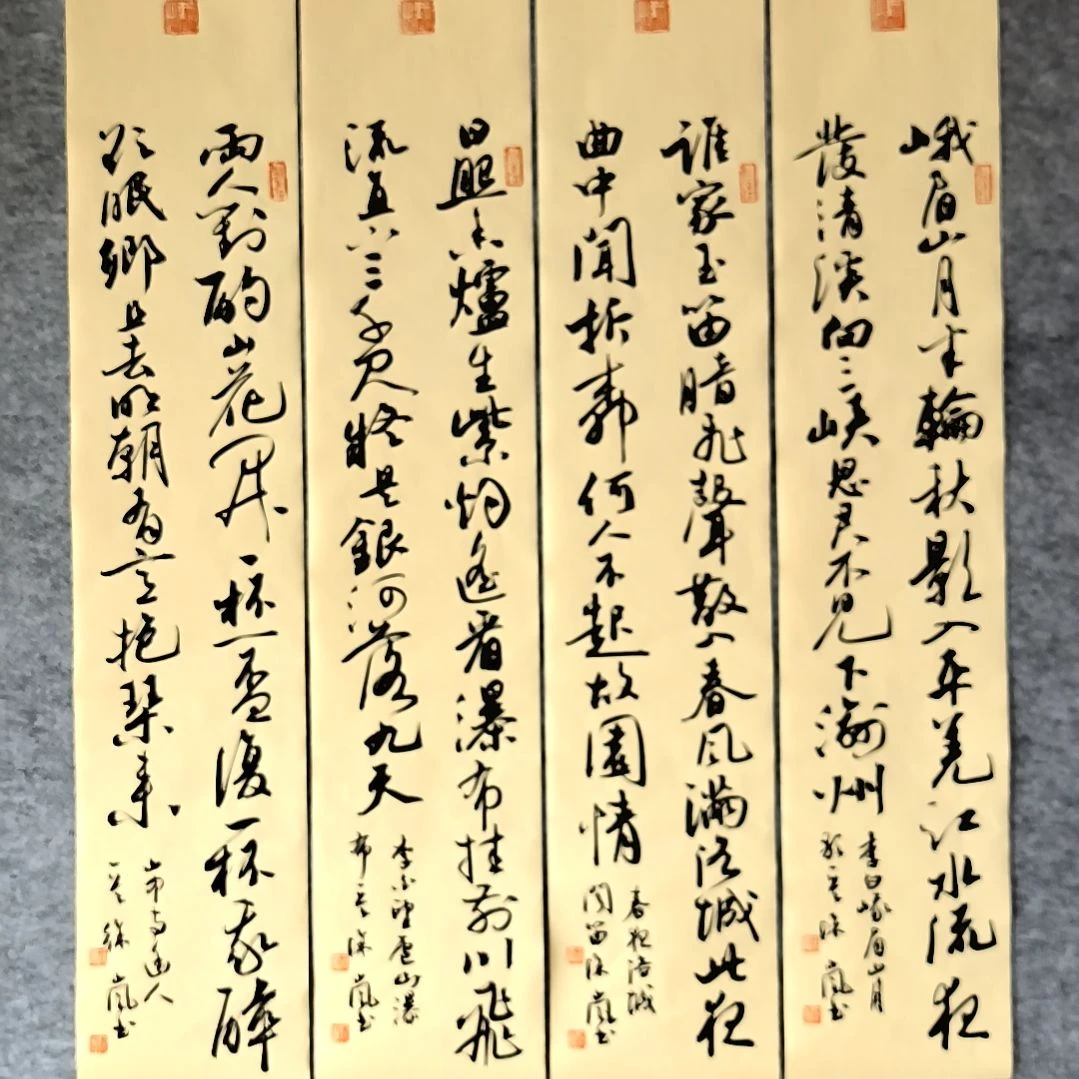 峨眉山月半輪秋影入平羌江水流夜
發清溪向三峽思君不見下渝州
李白峨眉山月
歌一首 嵐书
誰家玉笛暗飛聲散入春風滿洛城此夜
曲中聞折柳何人不起故園情
春夜洛城
聞笛 嵐书
日照香爐生紫烟遙看瀑布挂前川飛
流直下三千尺疑是銀河落九天
李白望廬山瀑
布一首 嵐书
兩人對酌山花開一杯一盃復一杯我醉
欲眠卿且去明朝有意抱琴來
山中與幽人
一首 嵐书